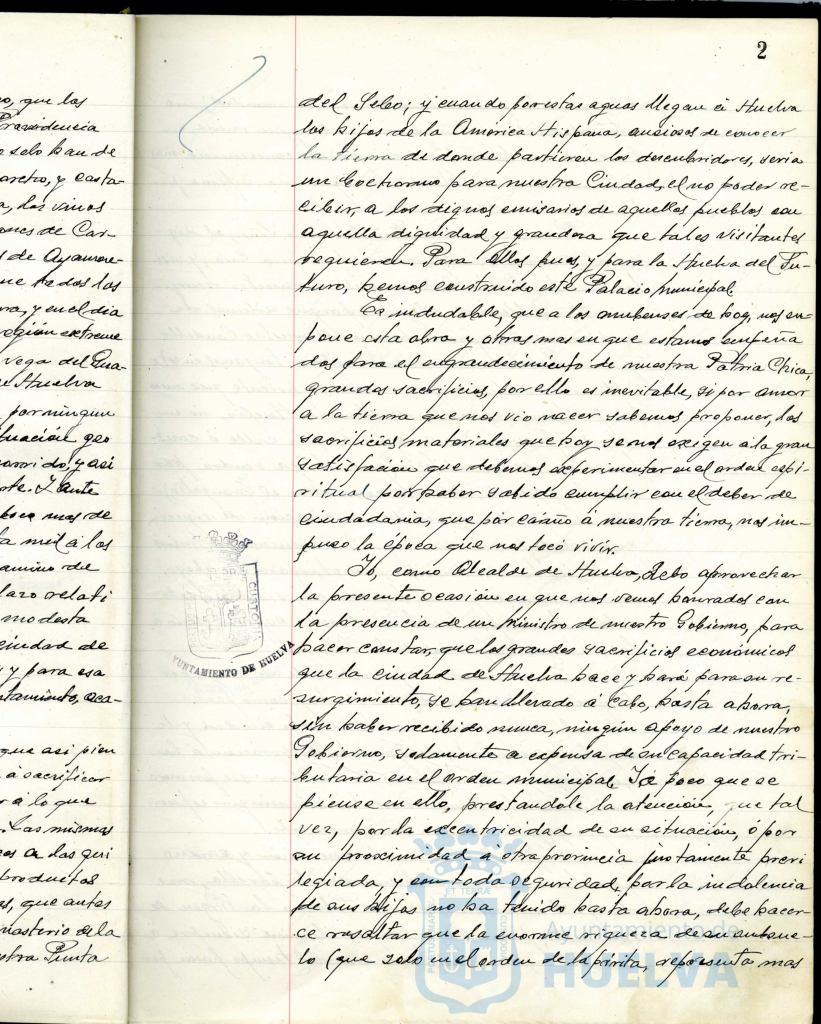 2
o, que los
Providencia
solo han de
y casta-
a, los vinos
ones de Car-
s de Ayamon-
ue todos los
ra, y en el dia
region extreme
vega del Gua-
Huelva
por ningun
tuación geo
y asi
rte. Y ante
mas de
a mil á los
amino de
lazo relati
modesta
ciudad de
y para esa
ntamiento, oca-
que asi pien
á sacrificar
r á lo que
Las mismas
os a las qui
productos
s, que antes
nasterio de la
stra Punta
del Sebo; y cuando por estas aguas llegan á Huelva
los hijos de la América Hispana, ansiosos de conocer
la tierra de donde partieron los descubridores, seria
un bochorno para nuestra Ciudad, el no poder re-
cibir, a los dignos emisarios de aquellos pueblos con
aquella dignidad y grandeza que tales visitantes
requieren. Para ellos pues, y para la Huelva del Fu-
turo, hemos construido este Palacio Municipal.
Es indudable, que a los onubenses de hoy, nos su-
pone esta obra y otras mas en que estamos empeña
dos para el engrandecimiento de nuestra Patria Chica,
grandes sacrificios, por ello es inevitable, si por amor
a la tierra que nos vio nacer sabemos proponer, los
sacrificios materiales que hoy se nos exigen á la gran
satisfación que debemos experimentar en el orden espi-
ritual por haber sabido cumplir con el deber de
ciudadania, que por cariño á nuestra tierra, nos im-
puso la época que nos tocó vivir.
Yo, como Alcalde de Huelva, debo aprovechar
la presente ocasión en que nos vemos honrados con
la presencia de un Ministro de nuestro Gobierno, para
hacer constar, que los grandes sacrificios económicos
que la ciudad de Huelva hace y hará para su re-
surgimiento, se han llevado á cabo, hasta ahora,
sin haber recibido nunca, ningún apoyo de nuestro
Gobierno, solamente a expensa de su capacidad tri-
butaria en el orden municipal. Y á poco que se
piense en ello, prestandole la atención, que tal
vez, por la excentricidad de su situación, ó por
su proximidad á otra provincia justamente previ
legiada, y con toda seguridad, por la indolencia
de sus hijos no ha tenido hasta ahora, debe hacer-
ce resaltar que la enorme riqueza de su subsue-
lo (que solo en el orden de la pirita, representa mas
CUSTODIA
AYUNTAMIENTO DE HUELVA
Ayuntamiento de
HUELVA